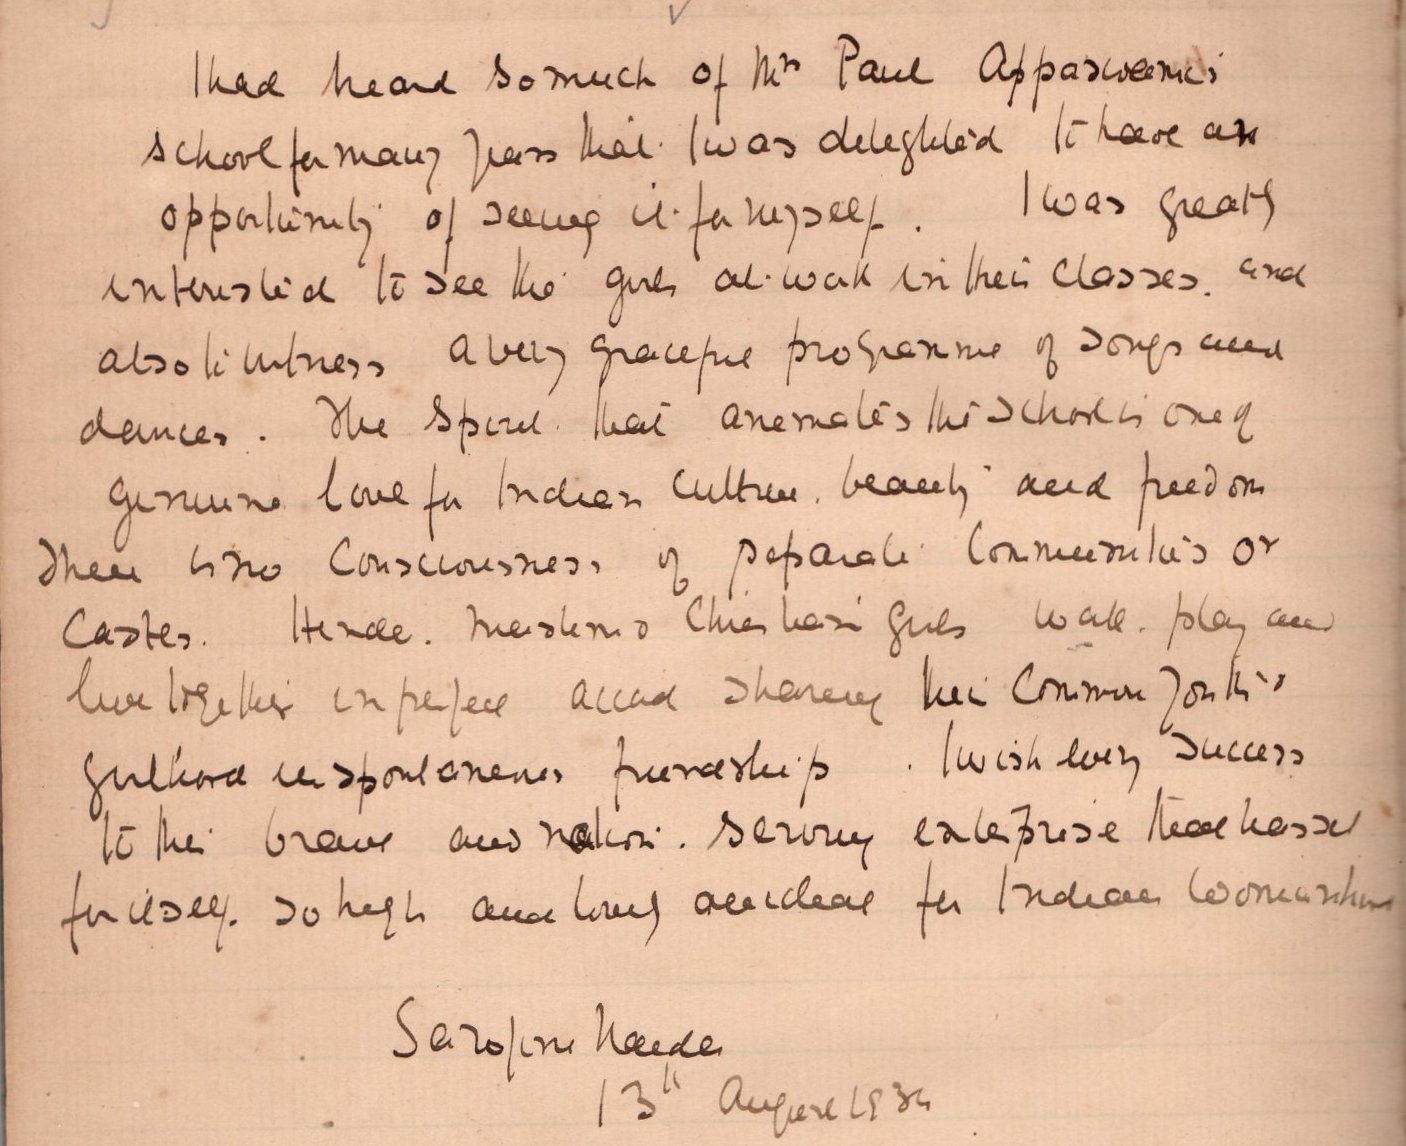 I had heard so much of Mrs Paul Appaswami's
school for many years that I was delighted to have an
opportunity of seeing it for myself. I was greatly
interested to see the girls at work in their classes. and
also to witness a very graceful programme of songs and
dances. The spirit that animates the school is one of
genuine love for Indian culture. beauty and freedom
There is no consciousness of separate communities or
castes. Hindu. Muslim & Christian girls work. play and
live together in perfect accord sharing their common youth &
girlhood in spontaneous friendship. I wish every success
to this brave and nation. serving enterprise that has set
for itself. so high and lovely an ideal for Indian womanhood
Sarojini Naidu
13th August 1934